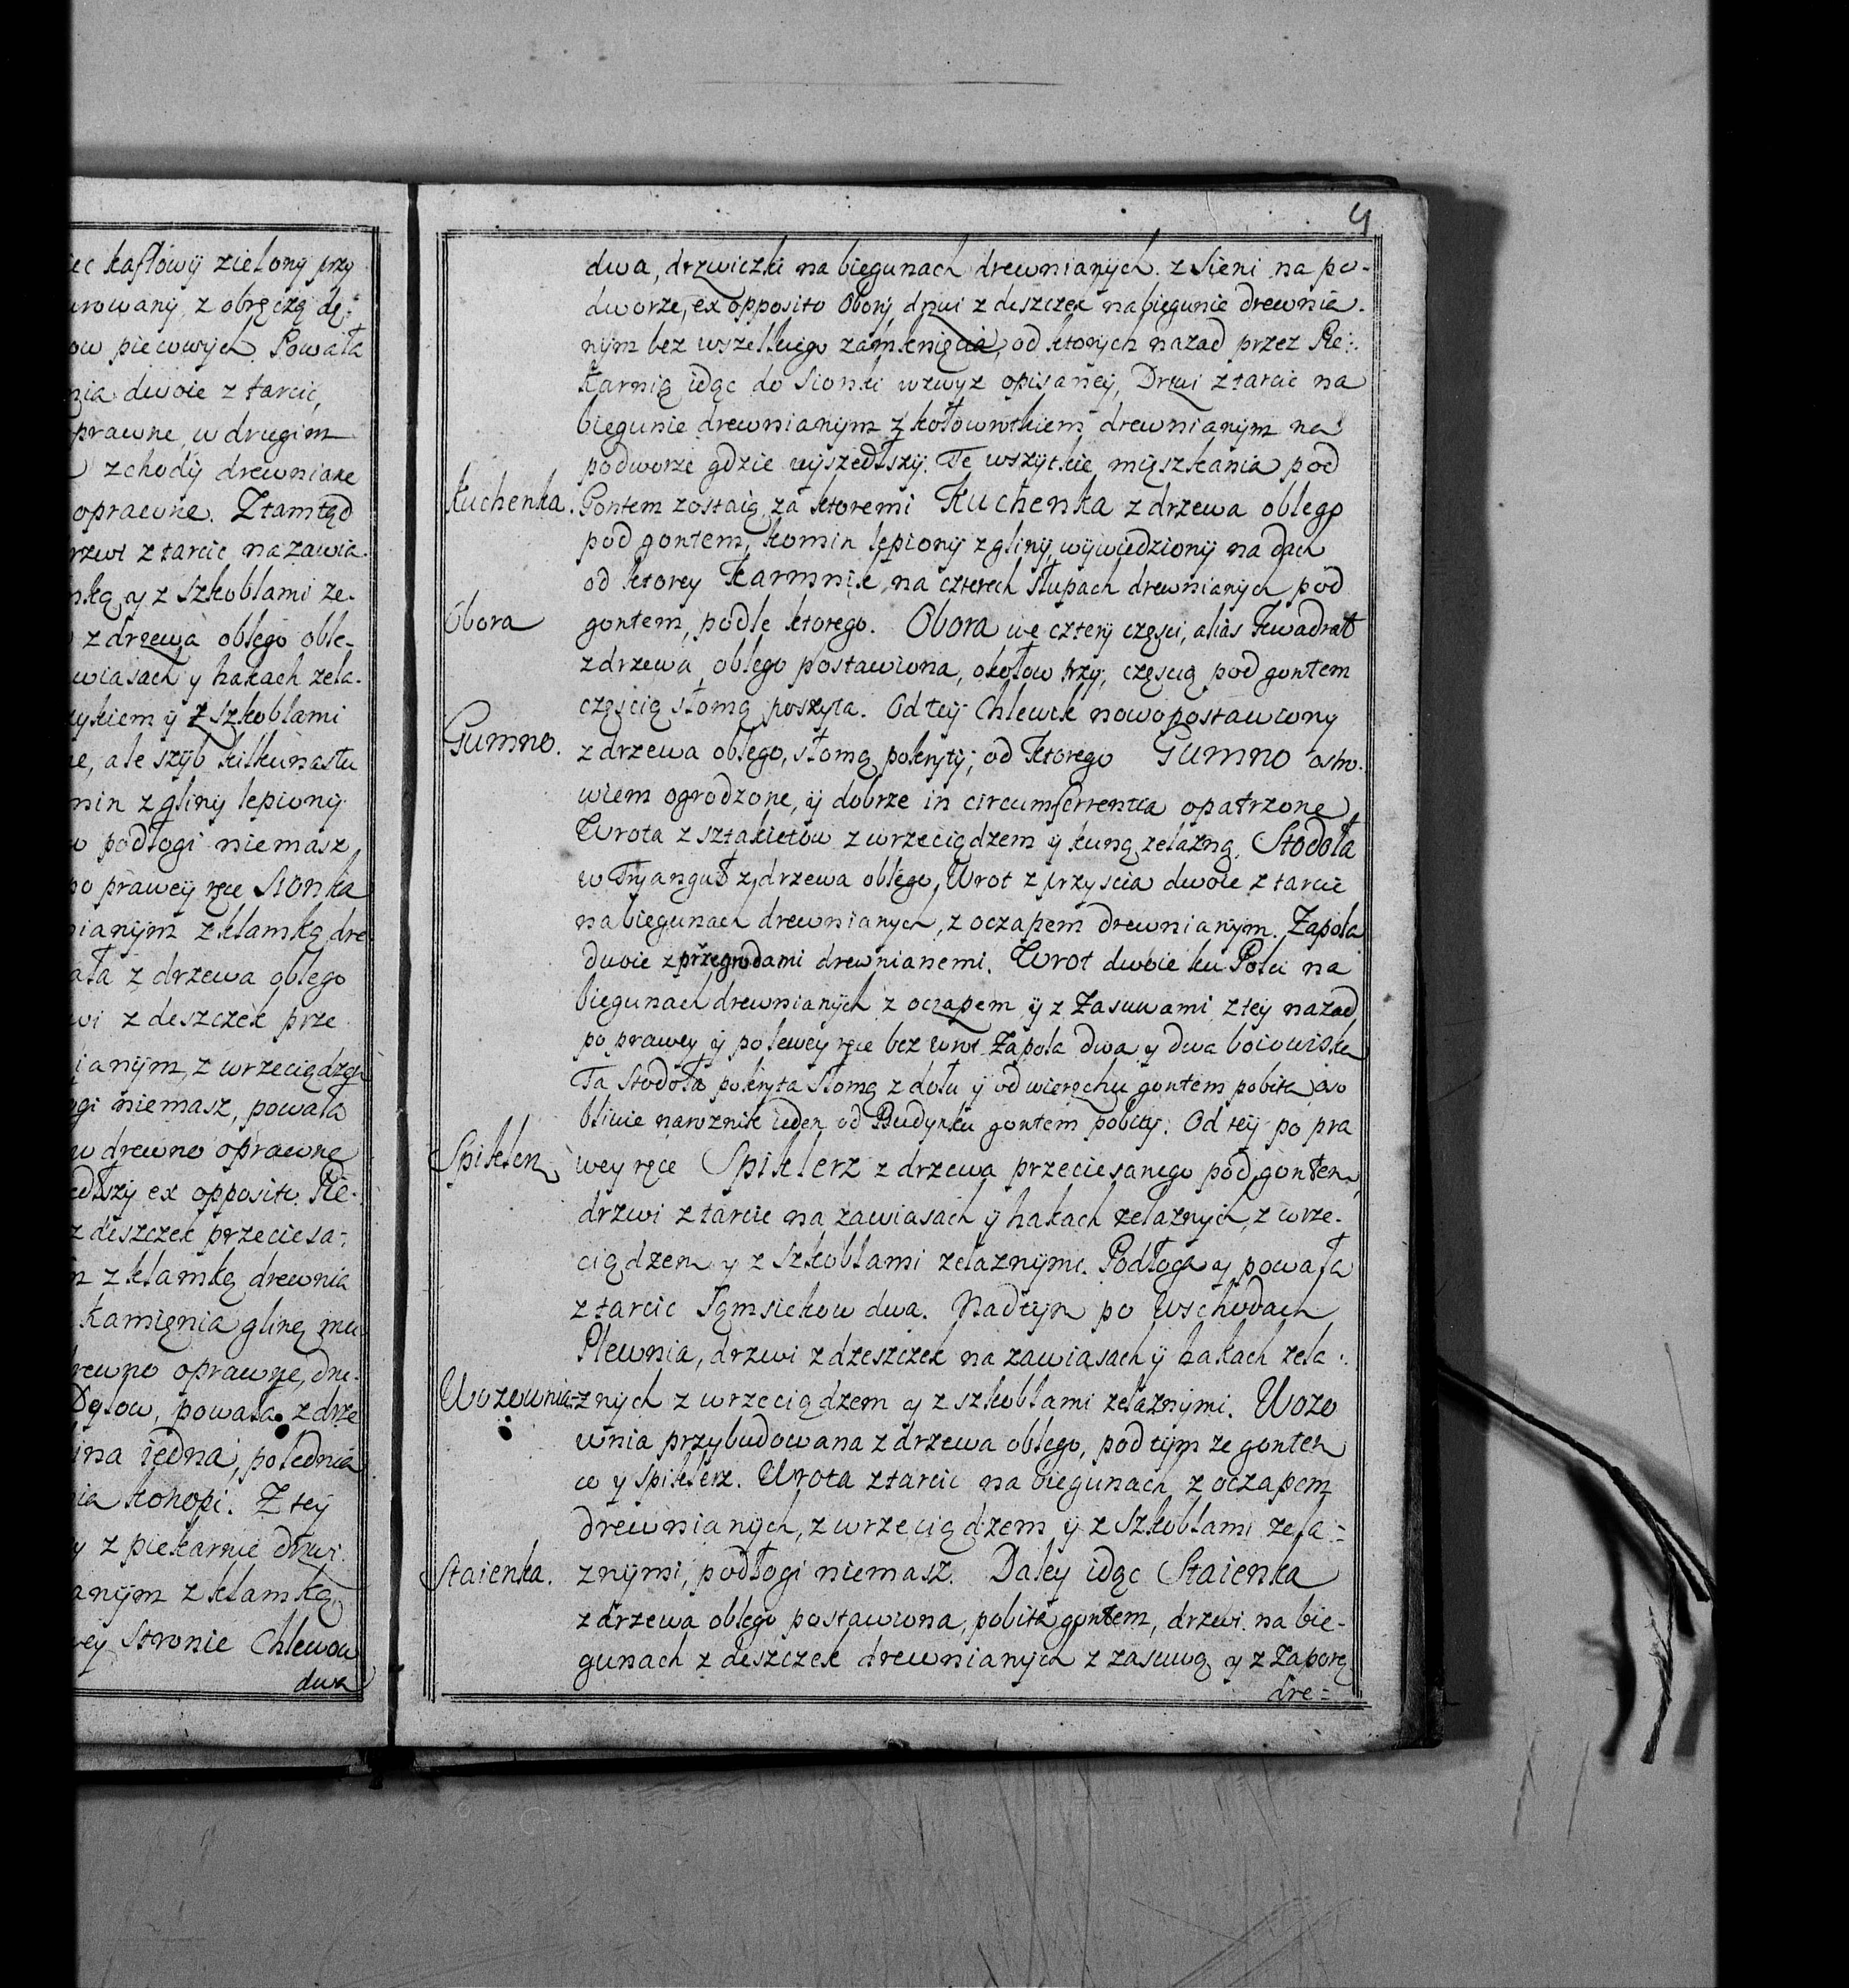 iec kaflowÿ zielonÿ przy
urowanÿ, z obręczą dę-
ow piecowÿch. Powała
nia dwoie z tarcic,
prawne, w drugim
zchodÿ drewniane
oprawne. Ztamtąd
rzwi z tarcic na zawia-
nką y z szkoblami że-
z drzewa oblego oble-
wiasach y hakach żela-
zykiem ÿ z szkoblami
ne, ale szÿb kilkunastu
min z gliny lepionÿ
w podłogi niemasz
po praweÿ ręce Sionka
nianÿm z klamką dre
ała z drzewa oblego
wi z deszczek prze
ianÿm, z wrzeciądze
ogi niemasz, powała
w drewno oprawne
edłszÿ ex opposito Pie-
z deszczek przeciesa-
m z klamką drewnia
kamięnia gliną mu
rewno oprawne, dru-
Dylow, powała z drze
ina iedna, polednia
nia konopi. Z teÿ
y z piekarnie drzwi
anÿm z klamką
wey stronie Chlewow
dwa
4
dwa, drzwiczki na biegunach drewnianÿch. z Sieni na po-
dworze, ex opposito Oborÿ drzwi z deszczek na biegunie drewnia-
nÿm bez wszelkiego zamknięcia, od ktorÿch nazad przez Pie-
karnią idąc do Sionki wzwyz opisaneÿ, Drzwi z tarcic na
biegunie drewnianÿm z kołowrotkiem drewnianÿm na
podworze gdzie wÿszedłszÿ. Te wszytkie mięszkania pod
Kuchenka. Gontem zostaią, za ktoremi Kuchenka z drzewa oblego
pod gontem, komin lepionÿ z glinÿ, wÿwiedzionÿ na dach
od ktorey Karmnik, na czterech słupach drewnianych pod
Obora gontem, podle ktorego. Obora we czterÿ częsci, alias Kwadrat
z drzewa oblego postawiona, okołow trzy, częscią pod gontem
częscią słomą poszyta. Od teÿ Chlewik nowo postawiony
Gumno. z drzewa oblego, słomą pokrytÿ; od ktorego Gumno ostro-
wiem ogrodzone, ÿ dobrze in circumferrentia opatrzone
Wrota z sztakietow z wrzeciądzem ÿ kuną żelazną. Stodoła
w Tryanguł z drzewa oblego, Wrot z przyscia dwoie z tarcic
na biegunach drewnianych, z oczapem drewnianÿm. Zapola
dwoie z przegrodami drewnianemi. Wrot dwoie ku Polu na
biegunach drewnianÿch z oczapem ÿ z Zasuwami z teÿ nazad
po prawey ÿ po lewey ręce bez wrot Zapola dwa y dwa boiowiska
Ta Stodoła pokryta słomą z dołu ÿ od wierzchu gontem pobita oso
bliwie narożnik ieden od Budynku gontem pobitÿ. Od teÿ po pra
Spiklerz wey ręce Spiklerz z drzewa przeciesanego pod gontem,
drzwi z tarcic na zawiasach ÿ hakach żelaznÿch, z wrze-
ciądzem y z Szkoblami żelaznÿmi. Podłoga y powała
z tarcic Sąmsiekow dwa. Nad tym po Wschodach
Plewnia, drzwi z dzeszczek na zawiasach ÿ hakach żela-
Wozownia: znych z wrzeciądzem y z szkoblami żelaznymi. Wozo
wnia przybudowana z drzewa oblego, pod tÿm że gontem
co y spiklerz. Wrota z tarcic na biegunach z oczapem
drewnianÿch, z wrzeciądzem ÿ z Szkoblami żela-
Staienka. znÿmi, podłogi niemasz. Daleÿ idąc Staienka
z drzewa oblego postawiona, pobita gontem, drzwi na bie-
gunach z deszczek drewnianych z zasuwą y z Zaporą
dre-